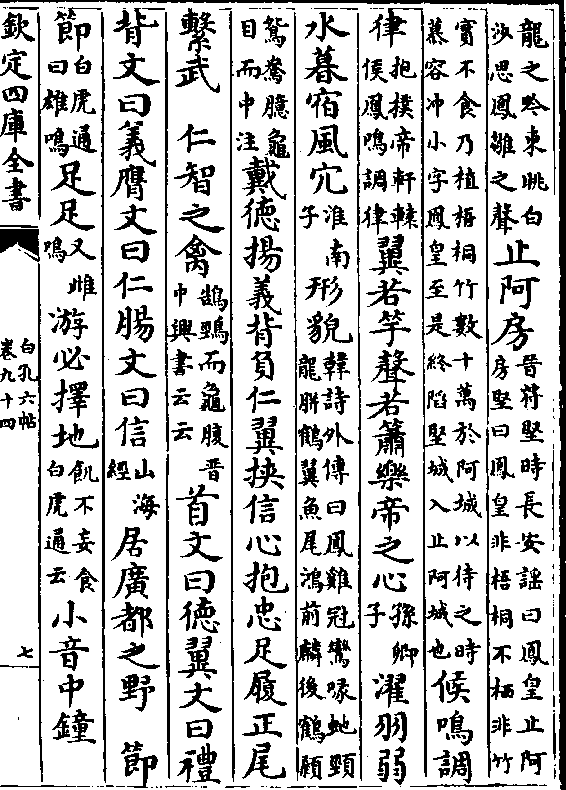 龍之吟東眺白
汐思鳳雛之聲
止阿房
晉苻堅時長安謡曰鳳皇止阿
房堅曰鳳皇非梧桐不栖非竹
實不食乃植梧桐竹數十萬於阿城以待之時
慕容冲小字鳳皇至是終陷堅城入止阿城也
候鳴調
律
抱撲帝軒轅
候鳳鳴調律
翼若竽聲若簫樂帝之心
孫卿
子
濯羽弱
水暮宿風穴
淮南
子
形貌
韓詩外傳曰鳳雞冠鷰喙蛇頸
龍胼鶴翼魚尾鴻前麟後鶴顙
鴛鴦臆龜
目而中注
戴徳揚義背負仁翼挾信心抱忠足履正尾
繫武
仁智之禽
鵠頸而龜腹晋
中興書云云
首文曰徳翼文曰禮
背文曰義膺文曰仁腸文曰信
山海
經
居廣都之野
節
節
白虎通
曰雄鳴
足足
又雌
鳴
游必擇地
飢不妄食
白虎通云
小音中鐘
欽定四庫全書
白孔六帖
卷九十四
七